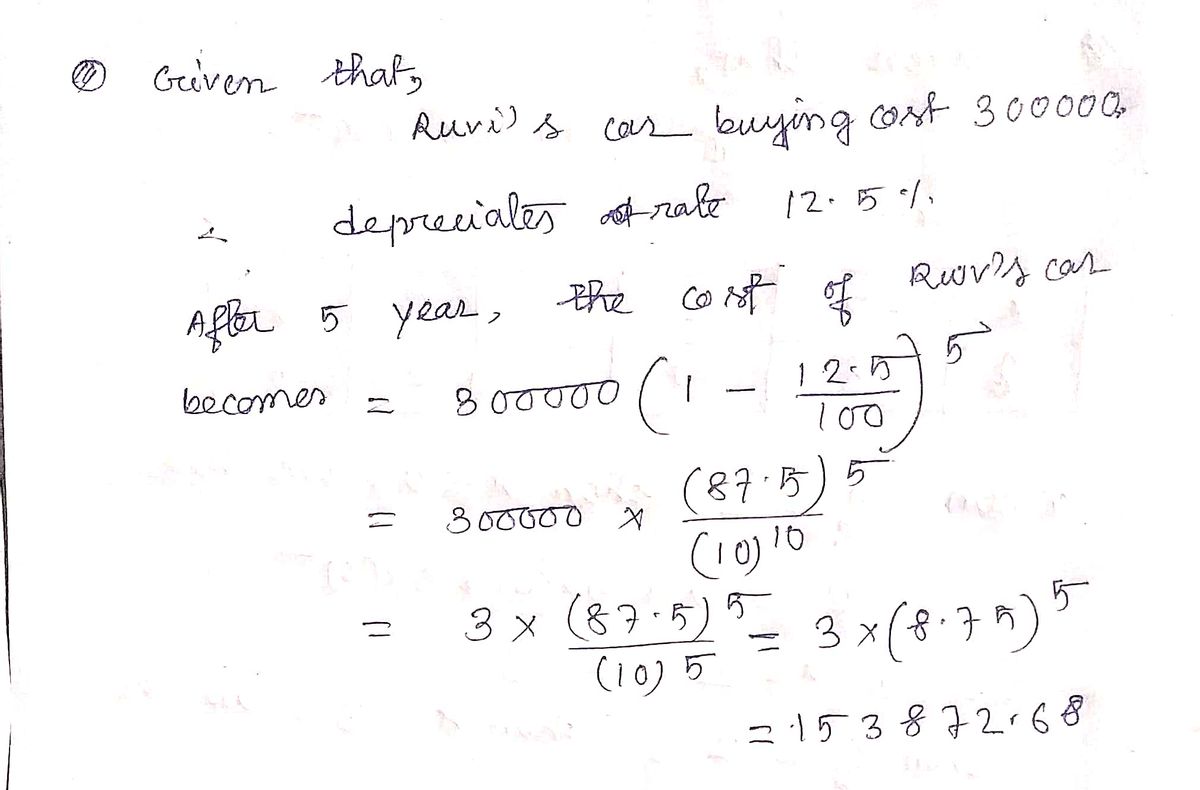 Given that,
Ruvi's car buying cost 300000,
depreciates rate 12.5 %.
After 5 year, the cost of Ruvi's car
becomes = 300000 (1 - 12.5/100)^5
= 300000 × (87.5)^5/(10)^10
= 3 × (87.5)^5/(10)^5 = 3 × (8.75)^5
= 153872.68